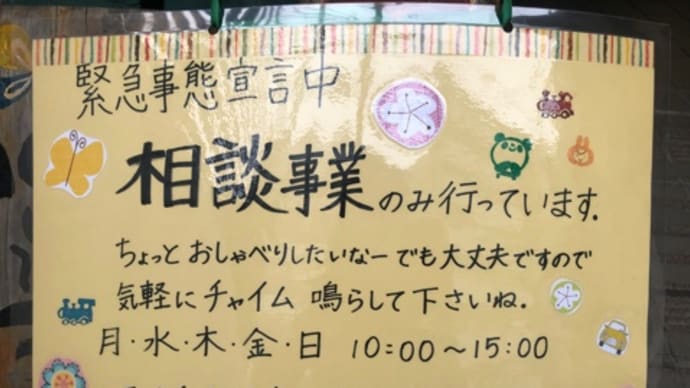 緊急事態宣言中
相談事業のみ行っています.
ちょっと おしゃべりしたいなー でも大丈夫ですので
気軽にチャイム 鳴らして下さいね.
月・水・木・金・日 10:00～15:00